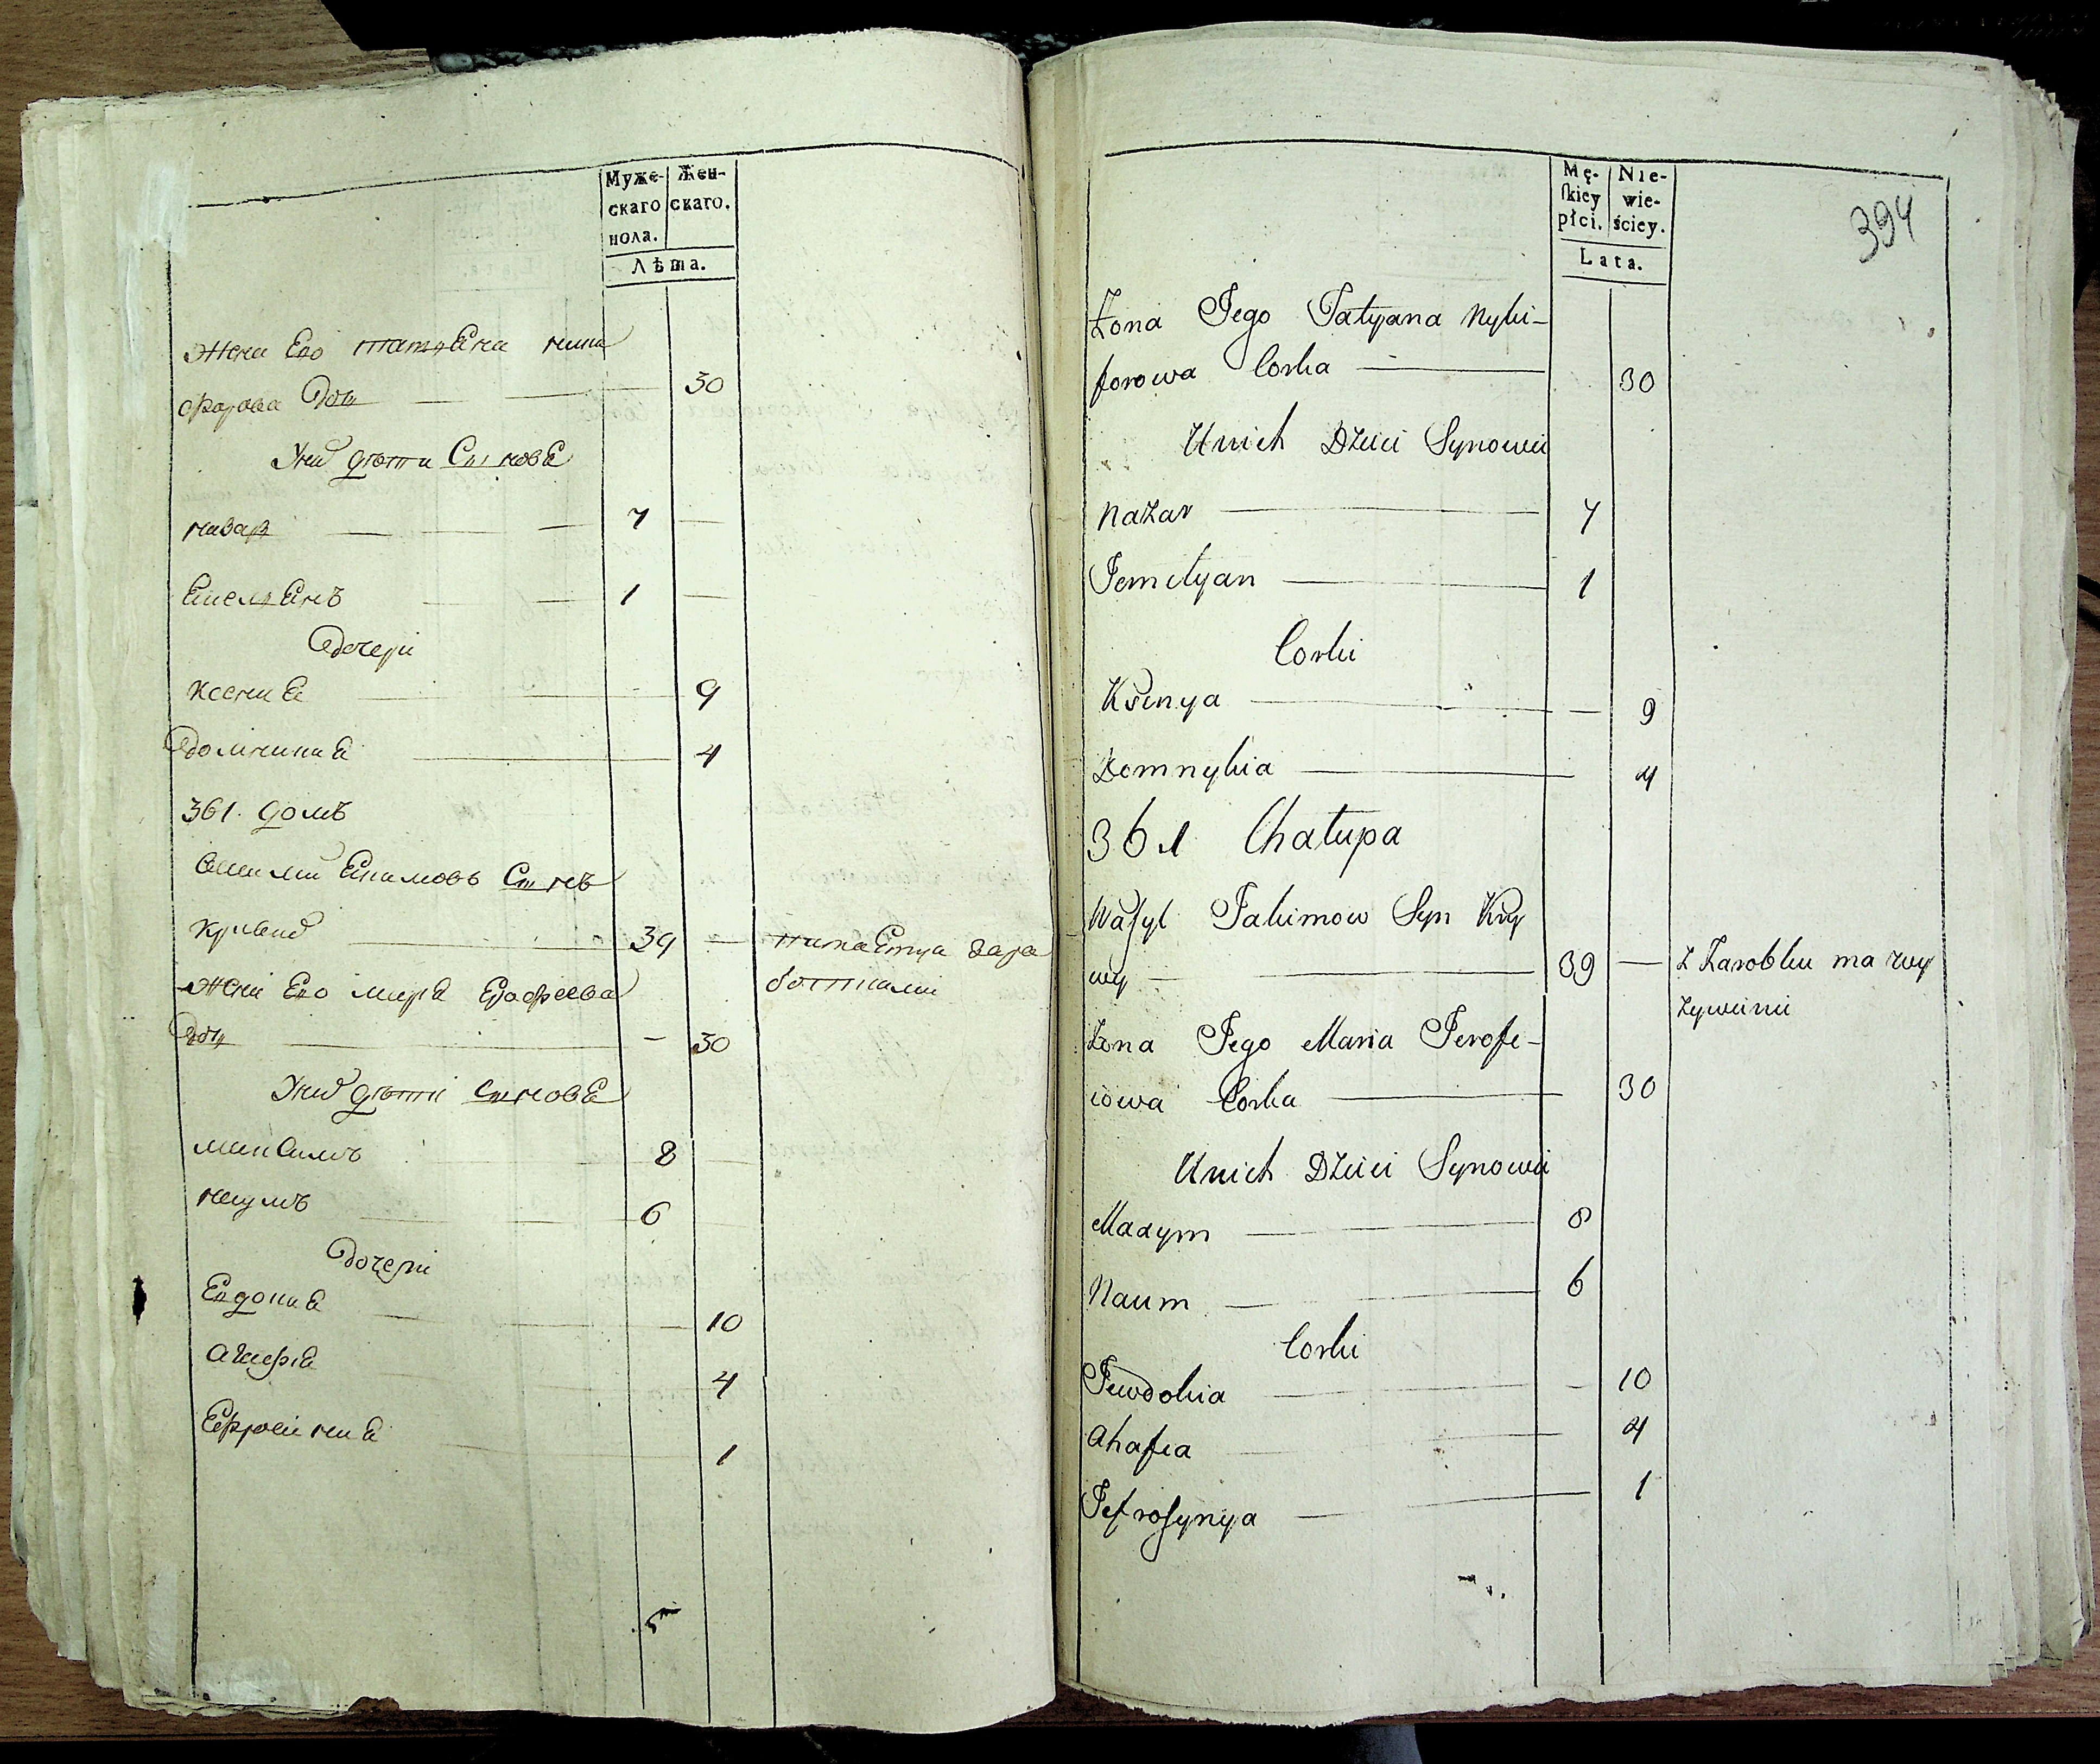 Муже-
скаго
пола.
Жен-
скаго.
Лѣта.
жена Его татьЕна ники
форова Дочь — — 30
У них дѣти СыновЕ
назар — — 7 —
ЕмельЕнъ — — 1 —
Дочери
ксениЕ — 9
ДомникиЕ — 4
361. домъ
Василий Екимовъ Сынъ
кривий — 39 — питаЕтца зара
ботками
жена Его марЕ Ерофеева
Дочь — — 30
У них дѣти сыновЕ
максимъ — 8 —
наумъ — 6
Дочери
ЕвдокиЕ — 10
АгафиЕ — 4
ЕфросиниЕ — 1
5
Mę-
ſkiey
płci.
Nie-
wie-
ściey.
Lata.
394
Żona Jego Tatyana Nyki-
forowa Corka — 30
U nich Dzieci Synowie
Nazar — 7
Jemelyan — 1
Corki
Ksenya — — 9
Domnykia — 4
361 Chałupa
Waſyl Jakimow Syn Kry
wy — 39 — z Zarobku ma wy
żywienie
Żona Jego Maria Jerofe-
iowa Corka — 30
U nich Dzieci Synowie
Maxym — 8
Naum — 6
Corki
Jewdokia — – 10
Ahafia — 4
Jefroſynya — 1